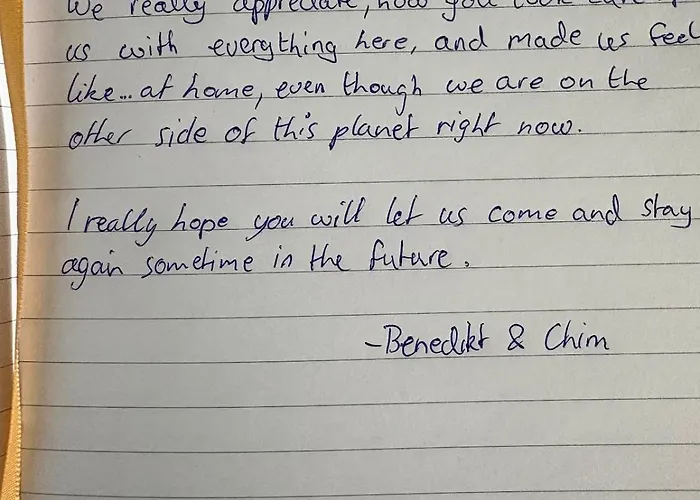 We really appreciate, how you took care of
us with everything here, and made us feel
like... at home, even though we are on the
other side of this planet right now.
I really hope you will let us come and stay
again sometime in the future.
-Benedikt & Chim